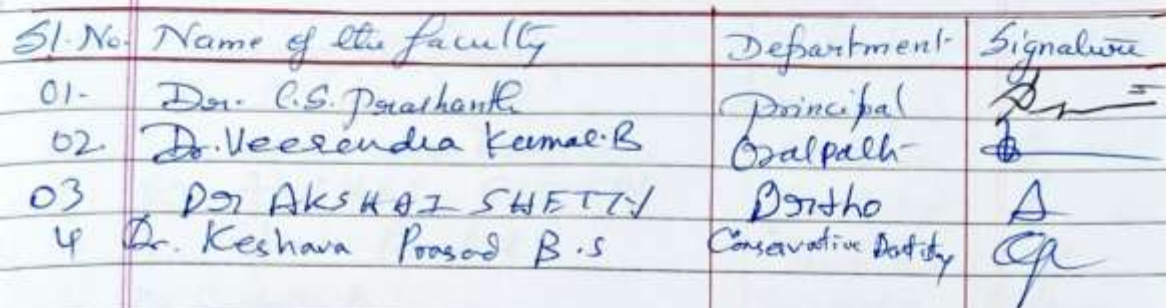 Sl. No. Name of the faculty Department Signature
01- Dr. C.S. Prashanth Principal
02. Dr. Veerendra Kumar. B Oralpath
03 Dr AKSHAI SHETTY Ortho
4 Dr. Keshava Prasad B.S Conservative Dentistry